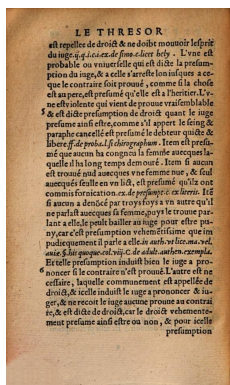 LE THRESOR
est repellee de droict & ne doibt mouuoir lesprit
du iuge. L'vne est
probable ou vniuerselle qui est dicte la presum-
ption du iuge, & a celle s'arreste lon iusques a ce-
que le contraire soit prouué, comme si la chose
est au pere, est presumé qu'elle est a l'heritier. L'v-
ne est violente qui vient de preuue vraisemblable
& est dicte presumption de droict quant le iuge
presume ainsi estre, comme s'il appert le seing &
paraphe cancellé est presumé le debteur quicte &
libere. ff. de proba. l. si chirographum. Item est presu-
mé que aucun ha congneu la femme auecques la-
quelle il ha long temps demouré. Item si aucun
est trouué nud auecques vne femme nue, & seul
auecques seulle en vn lict, est presumé qu'ilz ont
commis fornication. ex. de presumpt. c. ex literis. Ité
si aucun a denócé par troys foys a vn autre qu'il
ne parlast auecques sa femme, puys le trouue par-
lant a elle, le peult bailler au iuge pour estre pu-
ny, car c'est presumption vehemétissime que im
pudicquement il parle a elle. in auth. vt lice. ma. vel.
auie. §. his quoque. col. viij. C. de adult. authen.
Et telle presumption induist bien le iuge a pro-
noncer si le contraire n'est prouué. L'autre est ne
cessaire, laquelle communement est appellée de
droict, & icelle induit le iuge a prononcer & iu-
ger, & ne recoit le iuge aucune prouue au contrai
re, & est dicte de droict, car le droict vehemente-
ment presume ainsi estre ou non, & pour icelle
presumption